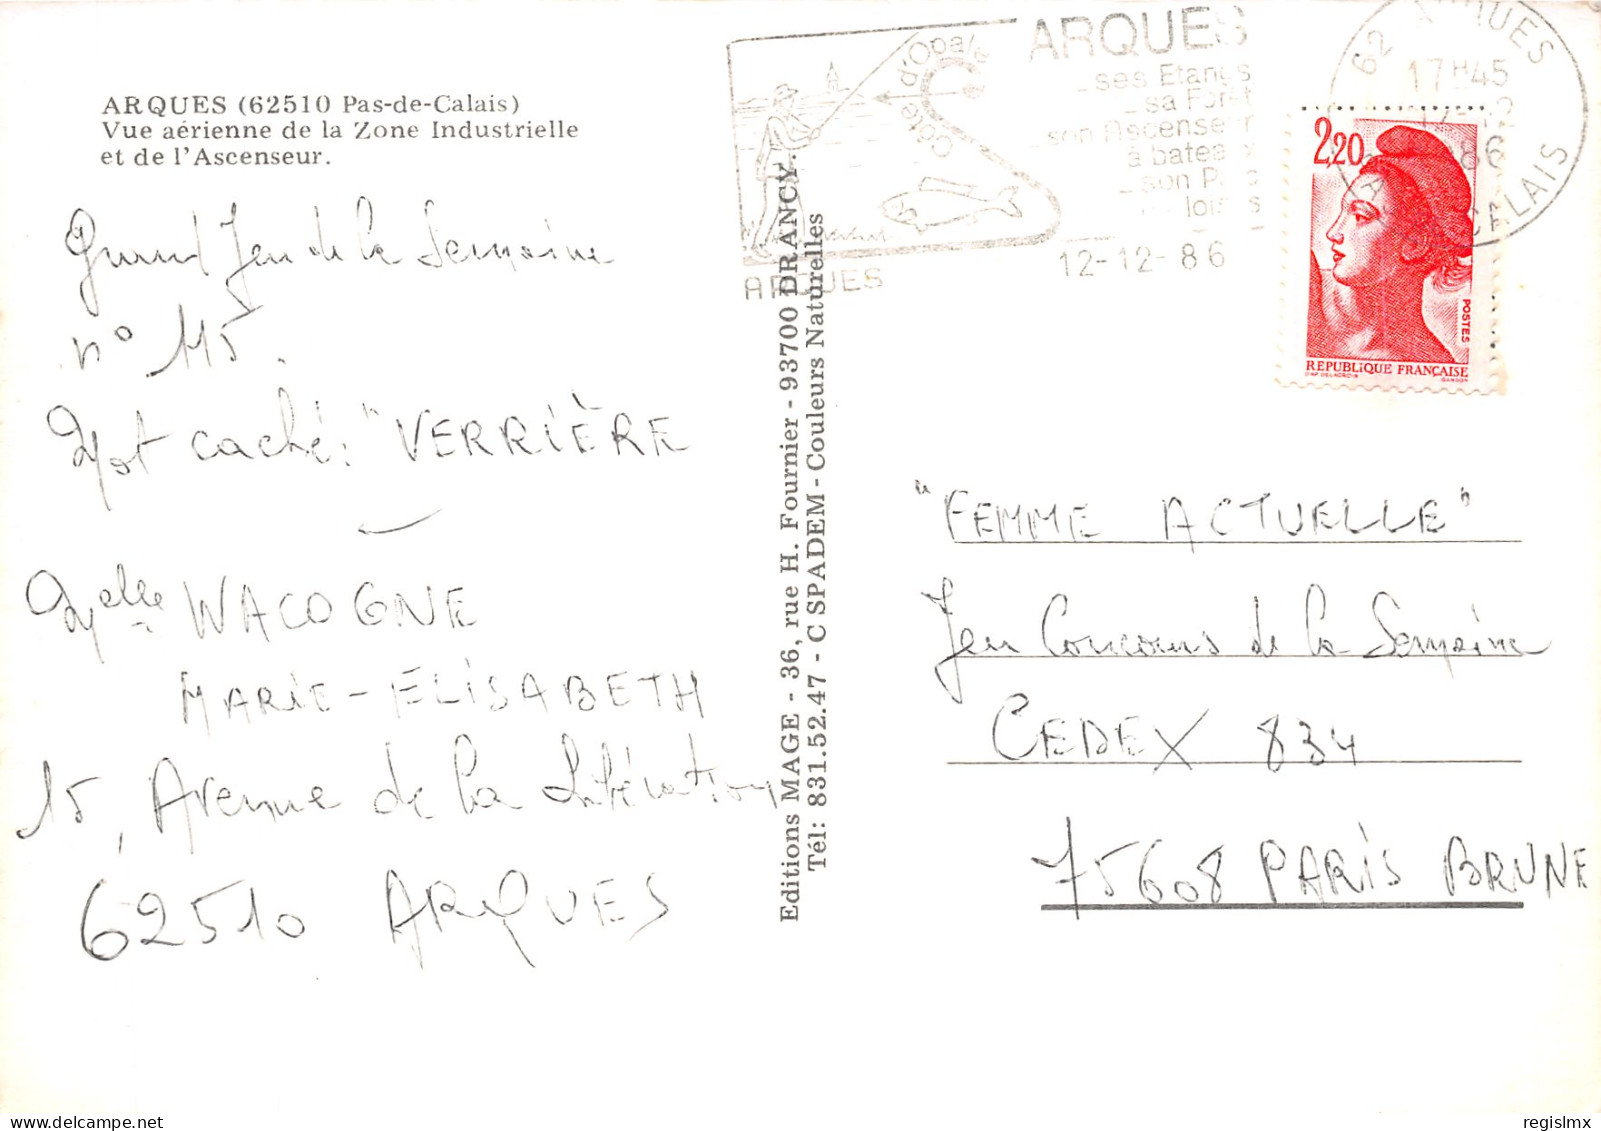 ARQUES (62510 Pas-de-Calais)
Vue aérienne de la Zone Industrielle
et de l'Ascenseur.
Grand Jeu de la Semaine
n° 115.
Mot caché : "VERRIÈRE
Melle WACOGNE
MARIE-ELISABETH
15, Avenue de la Libération
62510 ARQUES
Editions MAGE - 36, rue H. Fournier - 93700 DRANCY.
Tél: 831.52.47 - C SPADEM - Couleurs Naturelles
Côte d'Opale
ARQUES
ARQUES
_ses Etangs
_sa Forêt
_son Ascenseur
à bateaux
_son
12-12-86
62 ARQUES
17H45
86
CALAIS
2,20
POSTES
REPUBLIQUE FRANÇAISE
D'AP DELACROIX
GANDON
"FEMME ACTUELLE"
Jeu Concours de la Semaine
CEDEX 834
75608 PARIS BRUNE
regislmx